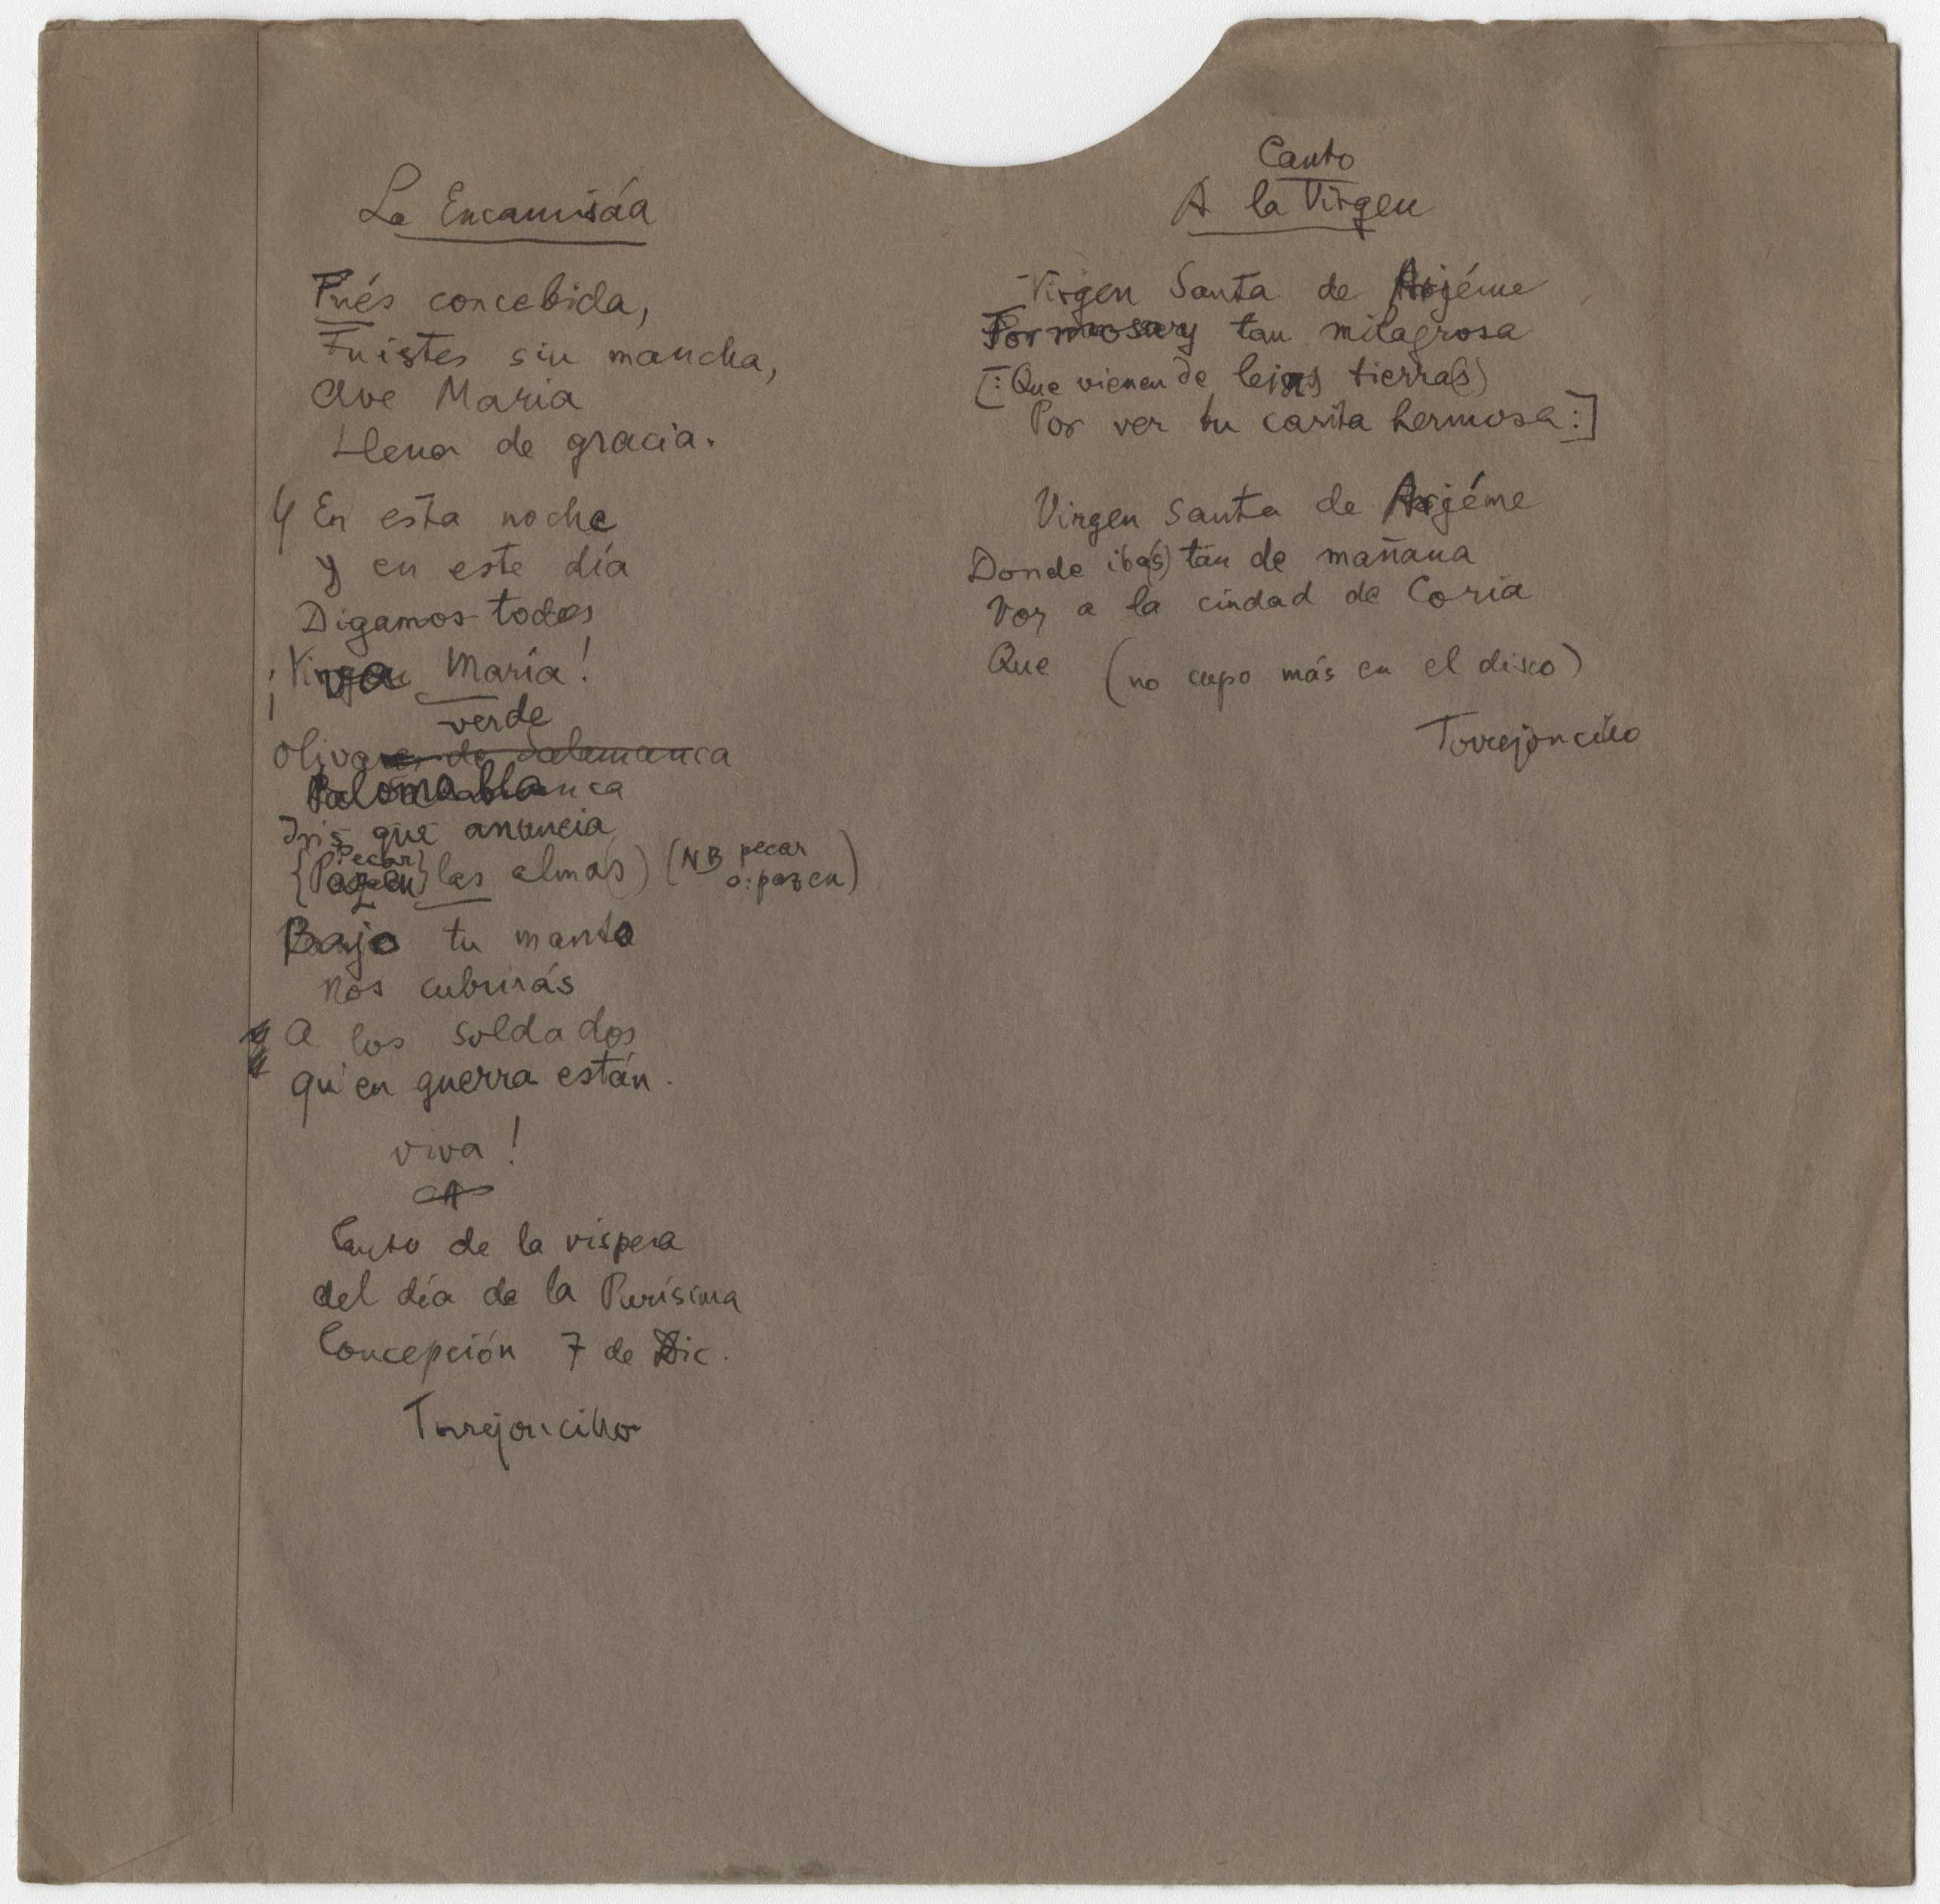 La Encamisáa
Pués concebida,
Fuistes sin mancha,
Ave Maria
Llena de gracia.
Y En esta noche
y en este día
Digamos todos
¡Viva María!
verde
Oliva de Salamanca
Paloma blanca
Iris que anuncia
{Pecar}
{Pazen} las alma(s) (NB pecar
o: pazen)
Bajo tu manto
nos cubrirás
A los soldados
qu'en guerra están.
viva!
Canto de la vispera
del día de la Purísima
Concepción 7 de Dic.
Torrejoncillo
Canto
A la Virgen
Virgen Santa de Arjéme
tan milagrosa
[: Que vienen de lejas tierra(s)
Por ver tu carita hermosa :]
Virgen santa de Arjéme
Donde iba(s) tan de mañana
Voy a la ciudad de Coria
Que (no cupo más en el disco)
Torrejoncillo